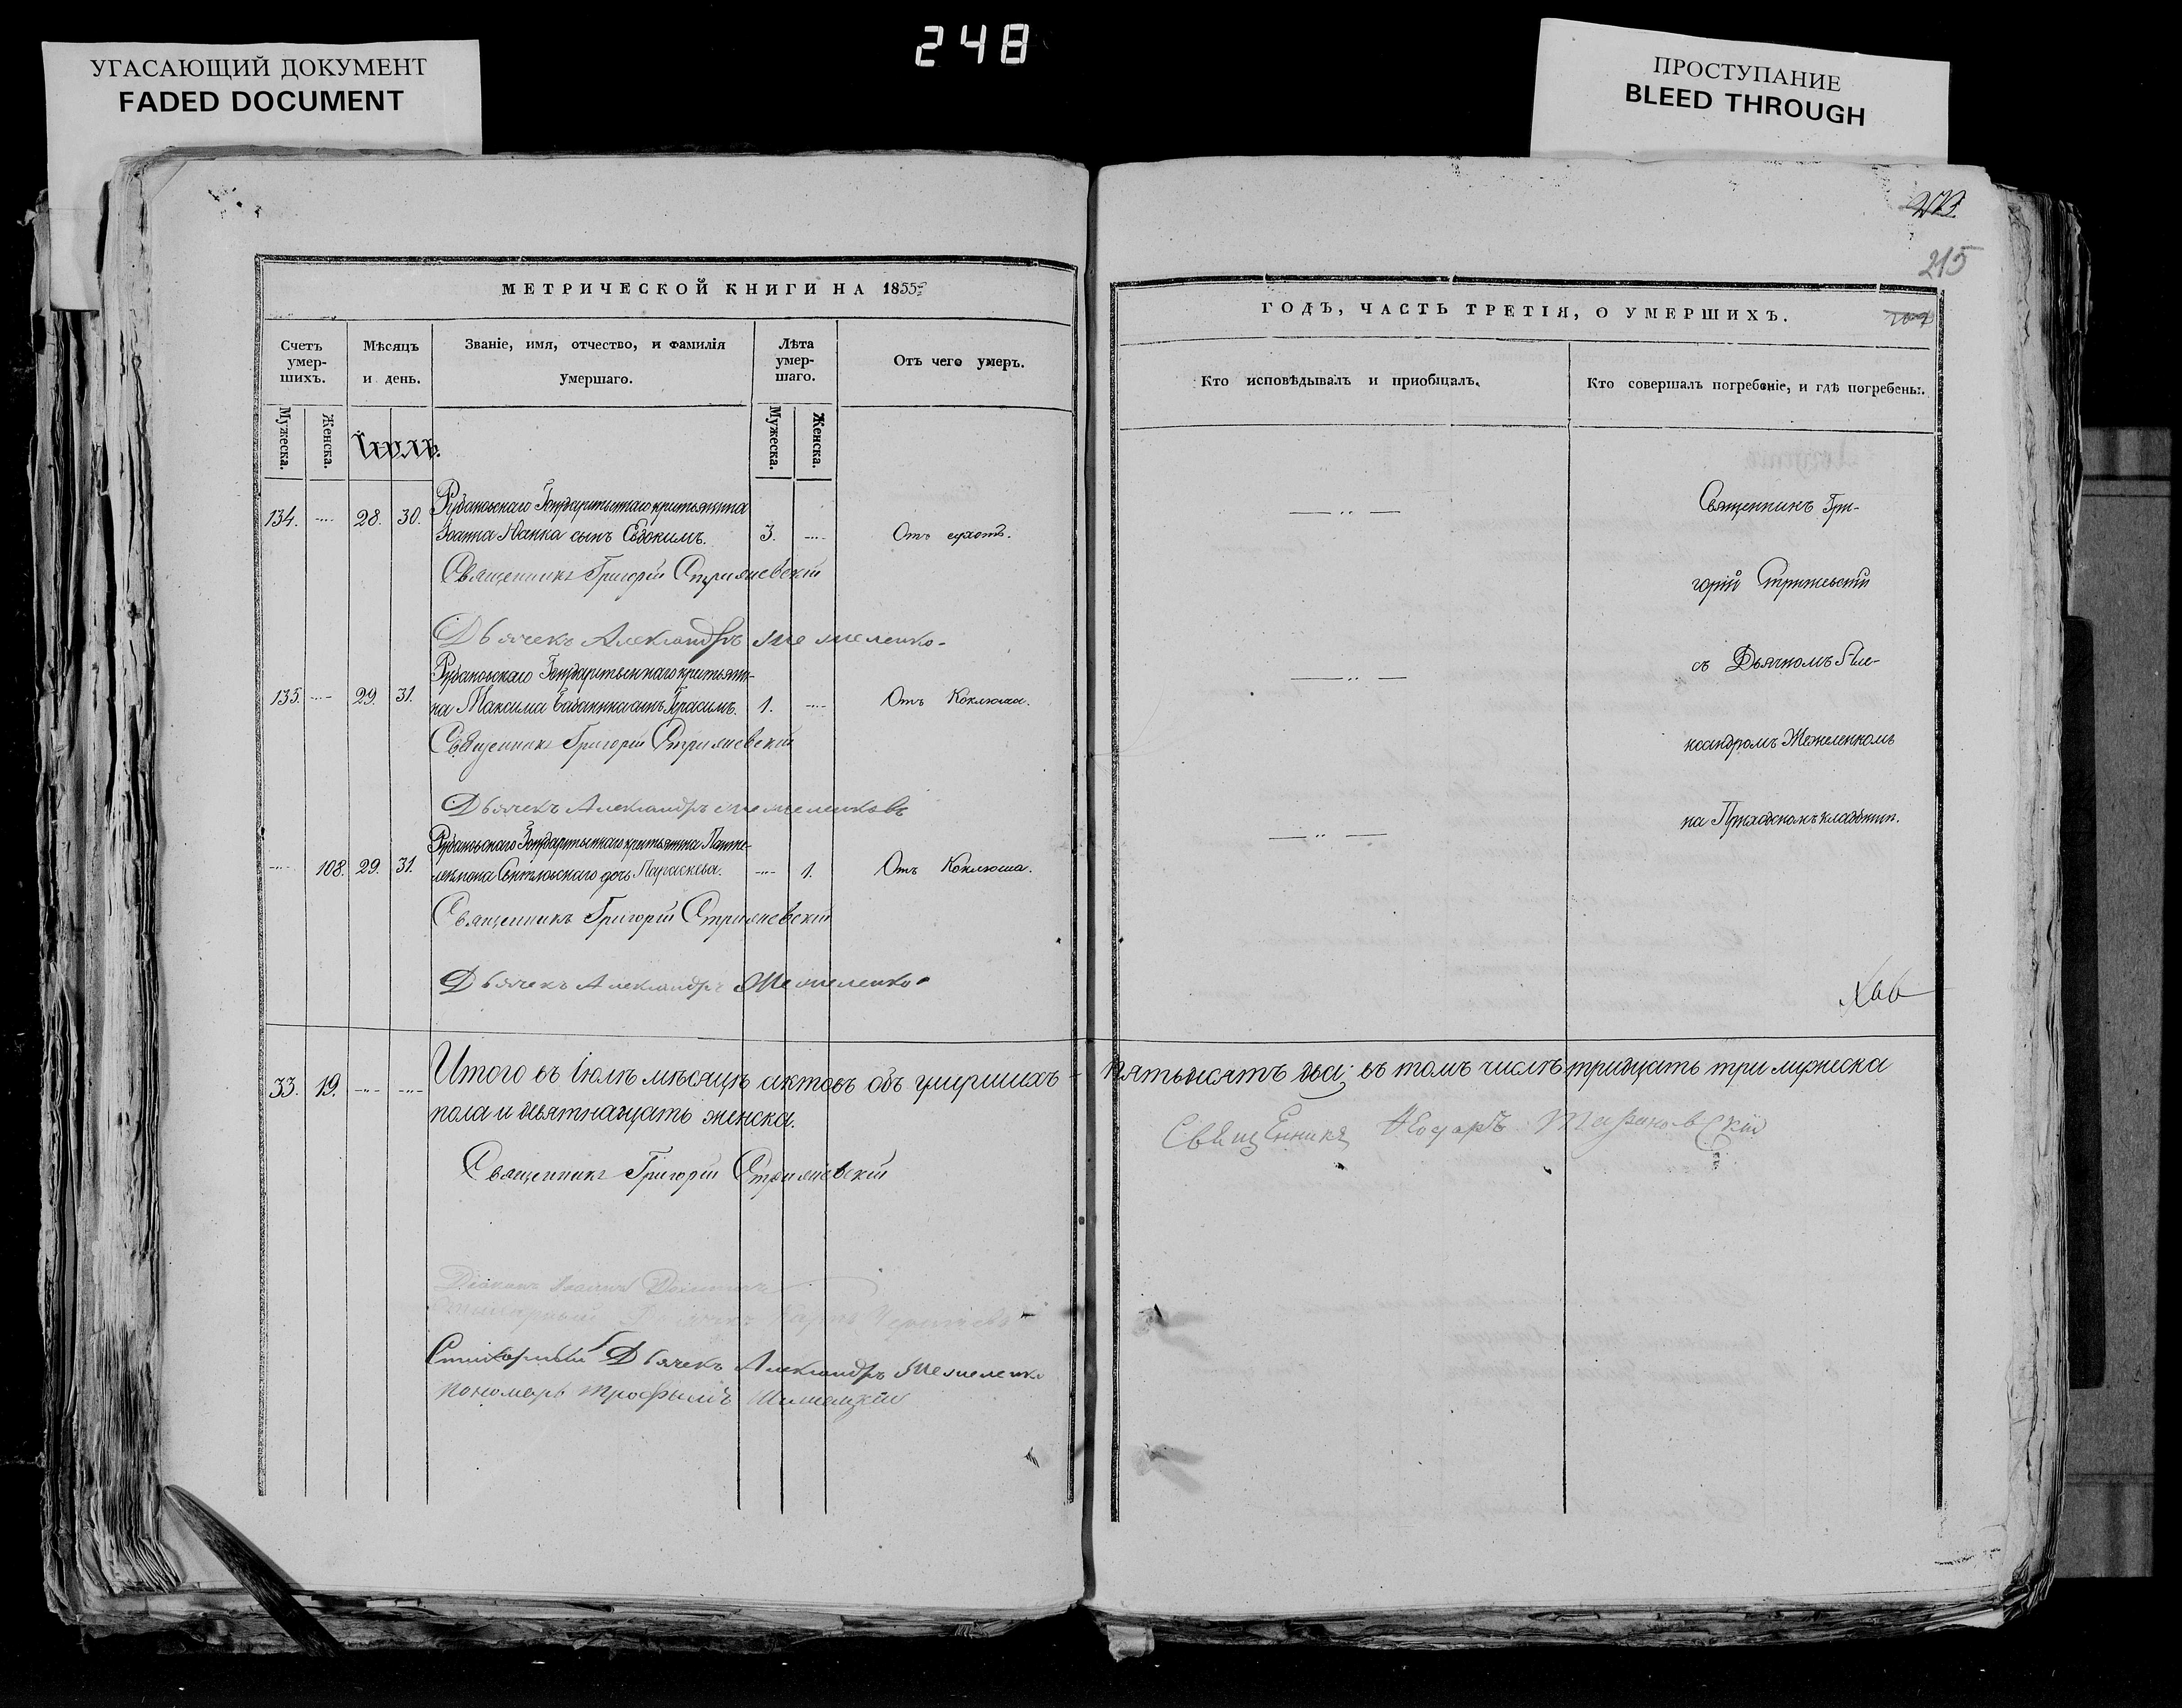 УГАСАЮЩИЙ ДОКУМЕНТ
FADED DOCUMENT
248
ПРОСТУПАНИЕ
BLEED THROUGH
215
МЕТРИЧЕСКОЙ КНИГИ НА 1855
Счетъ умер-шихъ.
Мѣсяцъ и день.
Званіе, имя, отчество, и фамилія Умершаго.
Лѣта умер-шаго.
Отъ чего умеръ.
Мужеска.
Женска.
Мужеска.
Женска.
Іюль.
134. 28. 30. Государственнаго крестьянина
Іоанна сынъ Евдокимъ. 3. Отъ сухотъ.
Священникъ Григорій Стрижевскій
Дьячекъ Александръ Межеленко
Государственнаго крестьяни-
135. 29. 31. на Максима сынъ Герасимъ. 1. Отъ Коклюша.
Священникъ Григорій Стрижевскій
Дьячекъ Александръ
Государственнаго крестьянина Панте-
108. 29. 31. леимона дочь Параскева. 1. Отъ Коклюша.
Священникъ Григорій Стрижевскій
Дьячекъ Александръ Межеленко
33. 19. Итого въ Іюлѣ мѣсяцѣ актовъ объ умершихъ
пола и девятнадцать женска.
Священникъ Григорій Стрижевскій
Діаконъ Іоаннъ
Стихарный Дьячекъ Александръ Межеленко
Пономарь Трофимъ
ГОДЪ, ЧАСТЬ ТРЕТІЯ, О УМЕРШИХЪ.
Кто исповѣдывалъ и пріобщалъ.
Кто совершалъ погребеніе, и гдѣ погребены.
Священникъ Гри-
горій Стрижевскій
съ Дьячкомъ Але-
ксандромъ Межеленкомъ
на Приходскомъ кладбищѣ.
пятьдесятъ два; въ томъ числѣ тридцать три мужеска
Священникъ